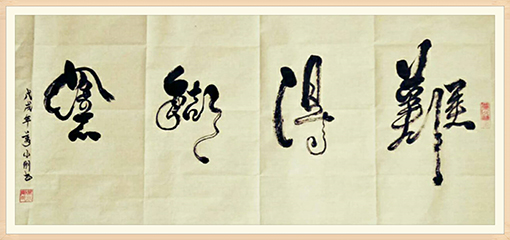 難得糊塗
戊戌年